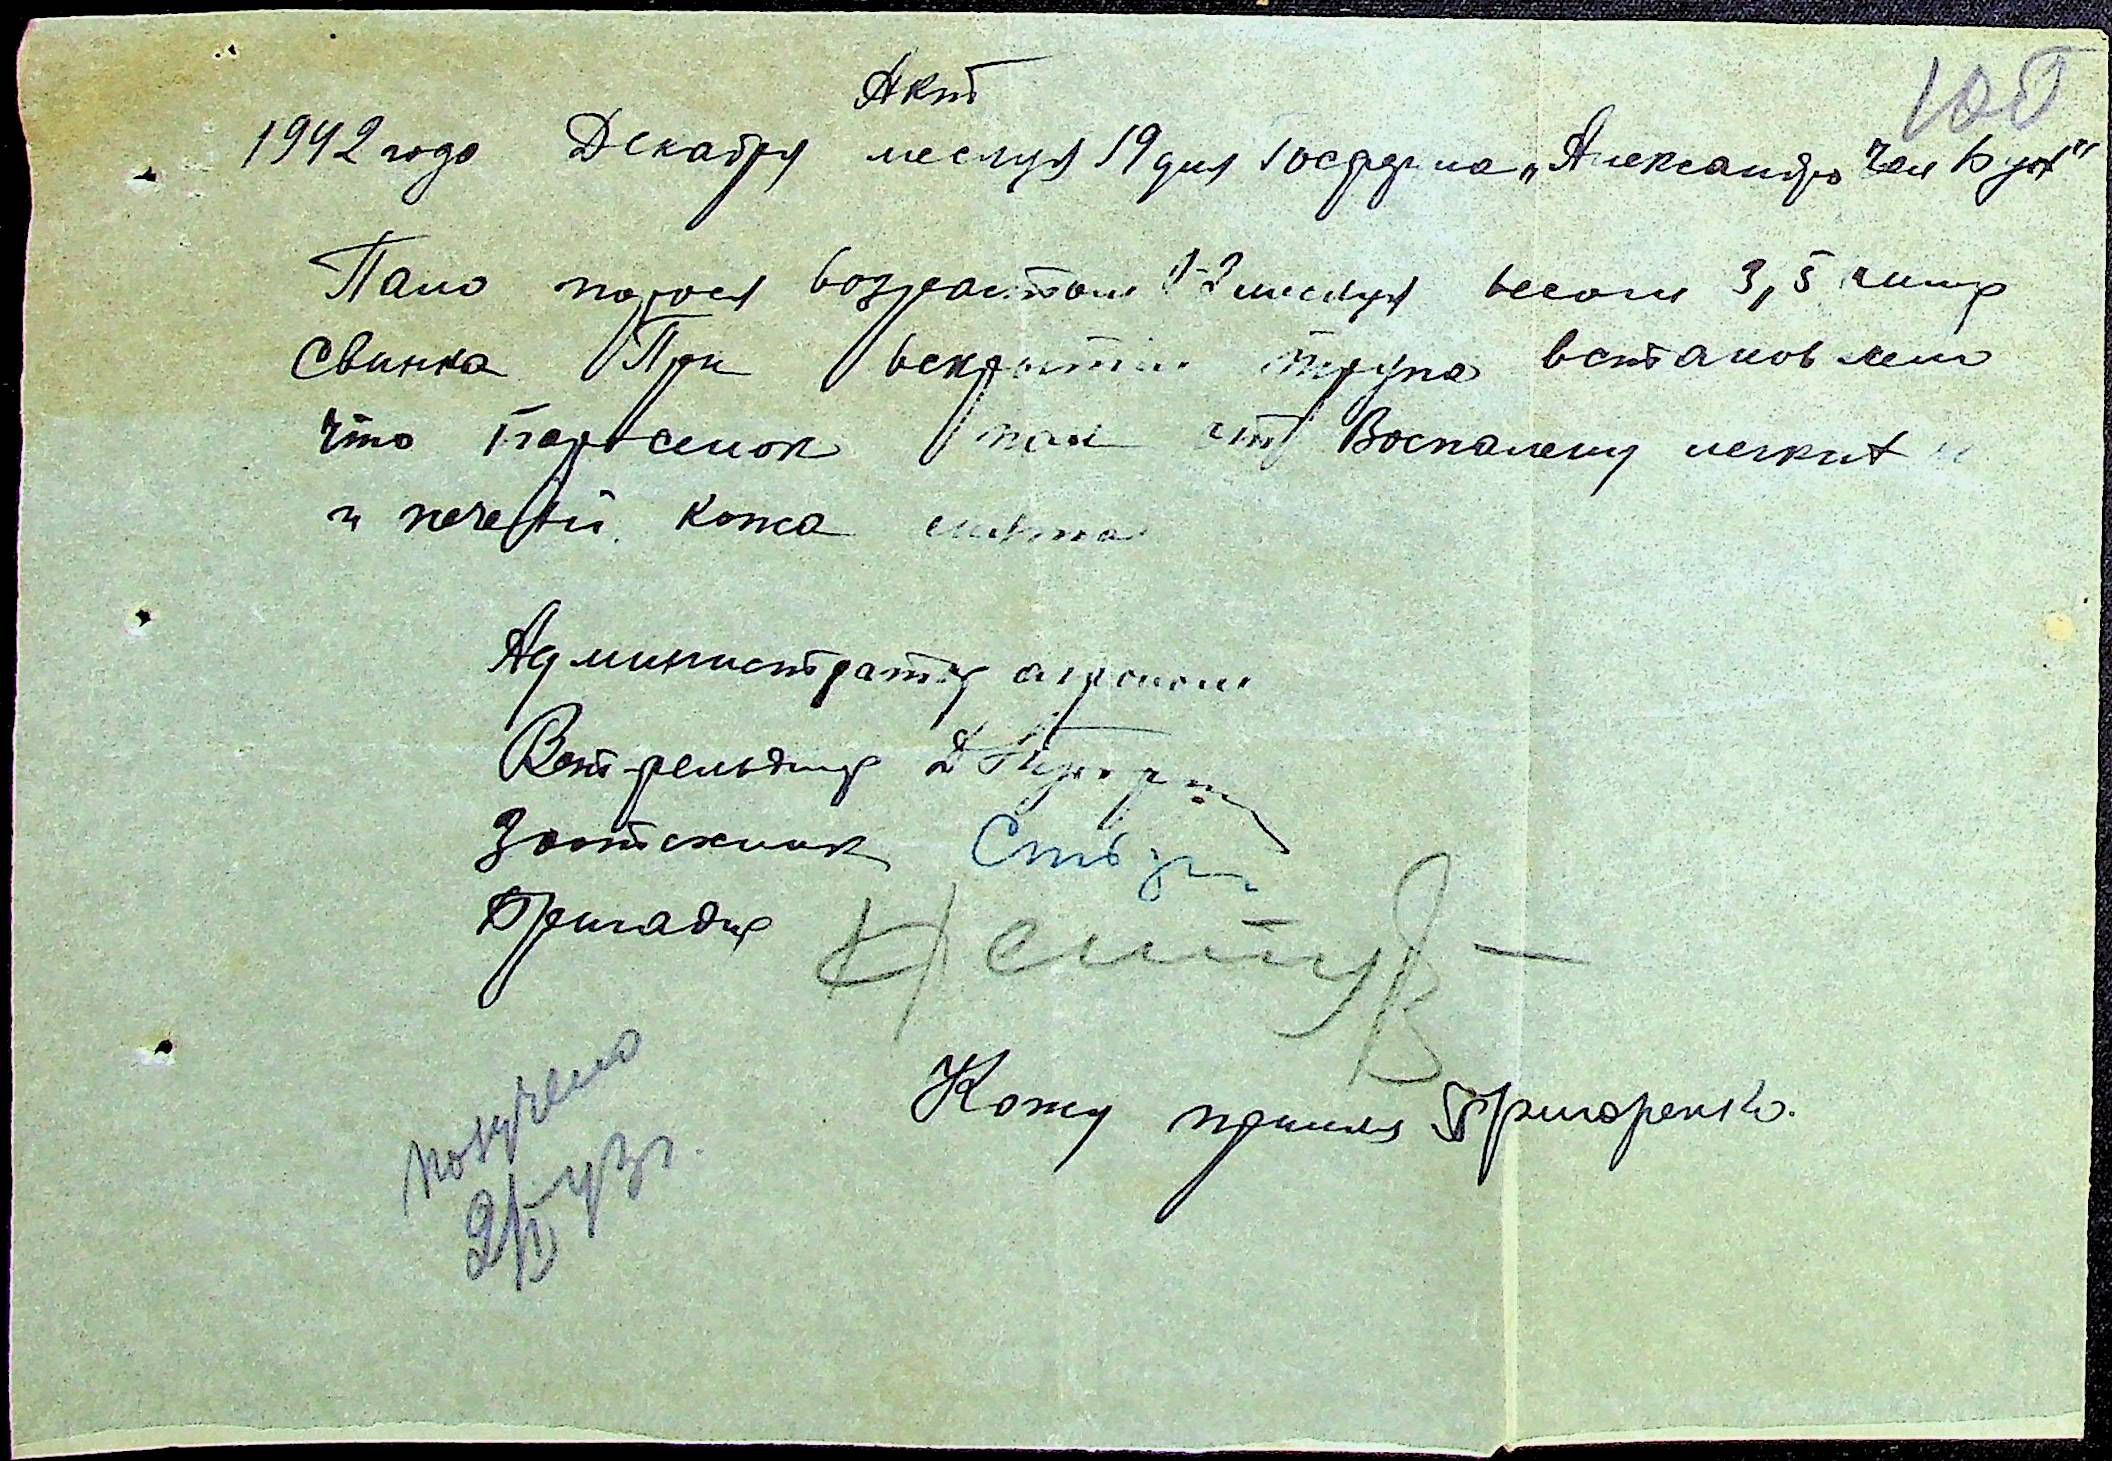 Акт
1942 года Декабря месяця 19 дня Госферма „Александро
Пало порося возрастом 1-2 месяця весом 3,5 килгр
Свинка При вскрытии трупа встановлено
что Поросенок пал от Воспаленя легких
и печени. Кожа снята
Администратор агроном
Вет-фельдшер
Зоотехник
Бригадир
Кожу принял Григоренко.
получено